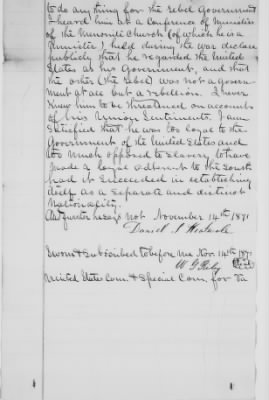 to do anything for the rebel Government
I heard him at a Conference of Ministers
of the Menonite Church (of which he is a
Minister), held during the war declare
publicly that he regarded the United
States as his Government, and that
the other (the rebel) was not a govern-
ment at all but a rebellion. I never
knew him to be threatened on account
of his Union Sentiments. I am
satisfied that he was too loyal to the
Government of the United States and
too much opposed to Slavery to have
made a loyal adherent to the South
had it succeeded in establishing
itself as a separate and distinct
Nationality.
And further he says not November 14th 1871
Daniel S
Sworn & Subscribed to before me Nov. 14th 1871
W G Riley
United States Com. & Special Com. for Va